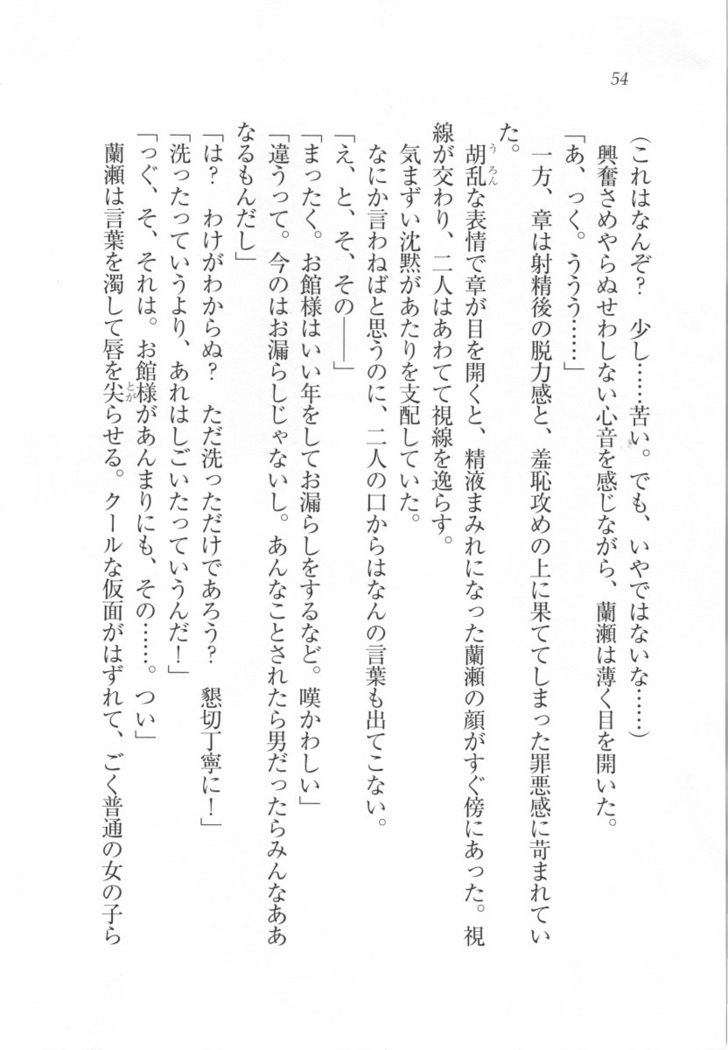 54
(これはなんぞ？　少し……苦い。でも、いやではないな……)
興奮さめやらぬせわしない心音を感じながら、蘭瀬は薄く目を開いた。
「あ、っく。ううう……」
一方、章は射精後の脱力感と、羞恥攻めの上に果ててしまった罪悪感に苛まれてい
た。
胡乱な表情で章が目を開くと、精液まみれになった蘭瀬の顔がすぐ傍にあった。視
線が交わり、二人はあわてて視線を逸らす。
気まずい沈黙があたりを支配していた。
なにか言わねばと思うのに、二人の口からはなんの言葉も出てこない。
「え、と、そ、その――」
「まったく。お館様はいい年をしてお漏らしをするなど。嘆かわしい」
「違うって。今のはお漏らしじゃないし。あんなことされたら男だったらみんなああ
なるもんだし」
「は？　わけがわからぬ？　ただ洗っただけであろう？　懇切丁寧に！」
「洗ったっていうより、あれはしごいたっていうんだ！」
「っぐ、そ、それは。お館様があんまりにも、その……。つい」
蘭瀬は言葉を濁して唇を尖らせる。クールな仮面がはずれて、ごく普通の女の子ら